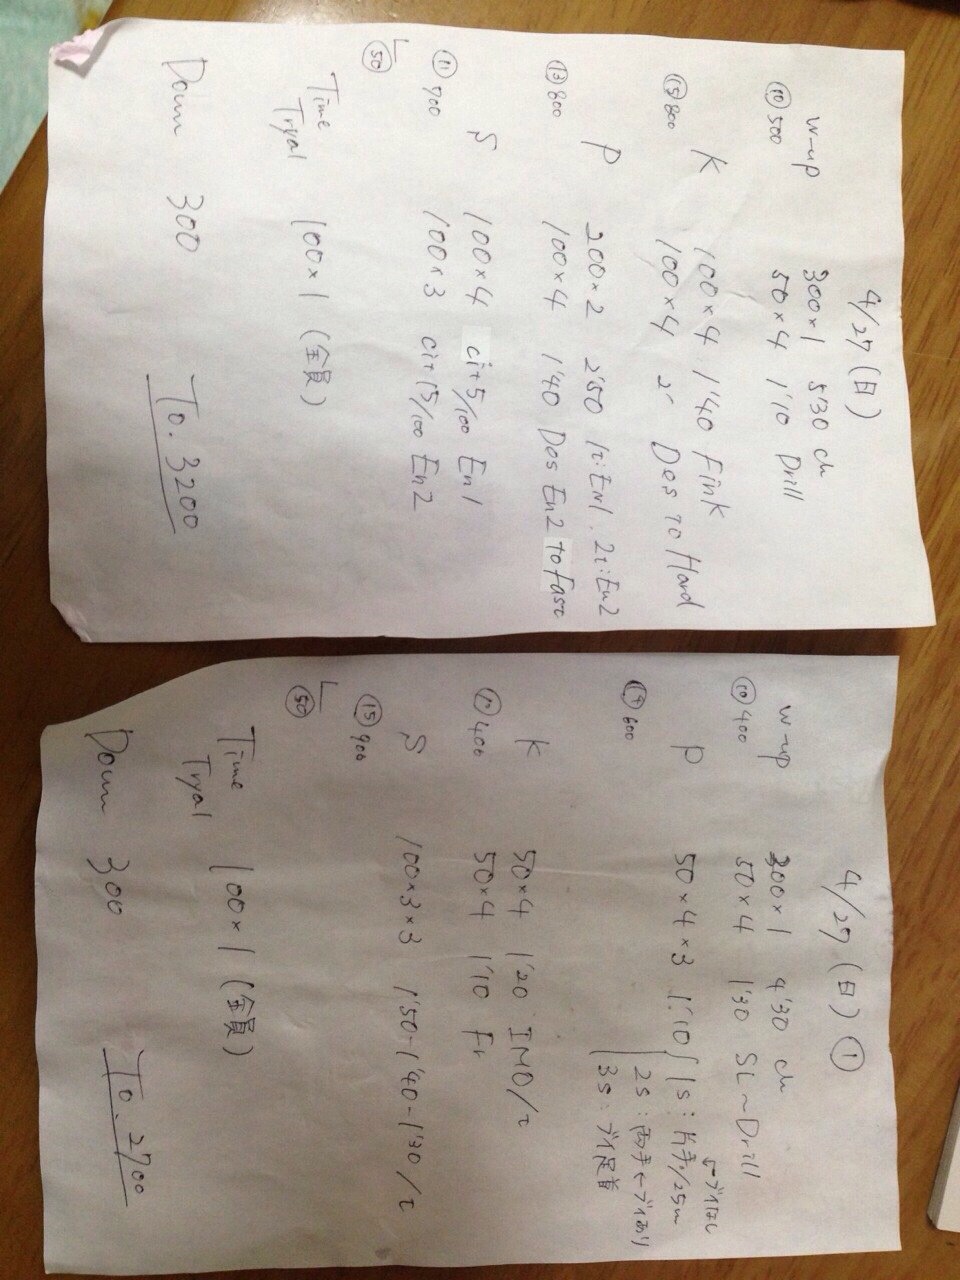 4/27(日)
W-up 300×1 5'30 ch
⑩500 50×4 1'10 Drill
K 100×4 1'40 Fink
⑮800 100×4 2' Des to Hard
P 200×2 2'50 1t:En1. 2t:En2
⑬800 100×4 1'40 Des En2 to Fast
S 100×4 ci+5/100 En1
⑪700 100×3 ci+15/100 En2
㊿
Time Tryal 100×1 (全員)
Down 300
To. 3200
4/27(日)①
W-up 200×1 4'30 ch
⑩400 50×4 1'30 SL~Drill
←ブイなし
P 50×4×3 1'10 1S:片手/25m
2S:両手←ブイあり
⑭600 3S:ブイ足首
K 50×4 1'20 IMO/t
⑩400 50×4 1'10 Fr
S 100×3×3 1'50-1'40-1'30/t
⑮900
㊿
Time Tryal 100×1 (全員)
Down 300
To. 2700